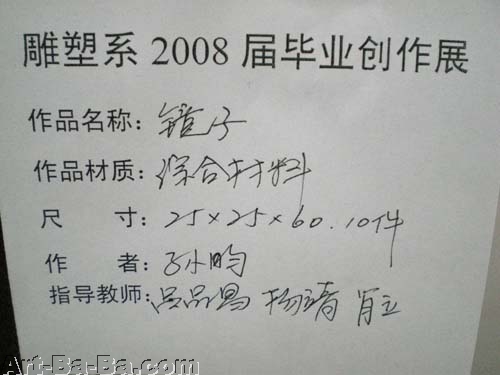 雕塑系 2008 届毕业创作展
作品名称：镜子
作品材质：综合材料
尺 寸：25×25×60.10件
作 者：孙小昀
指导教师：吕品昌 杨靖 肖立
Art-Ba-Ba.com